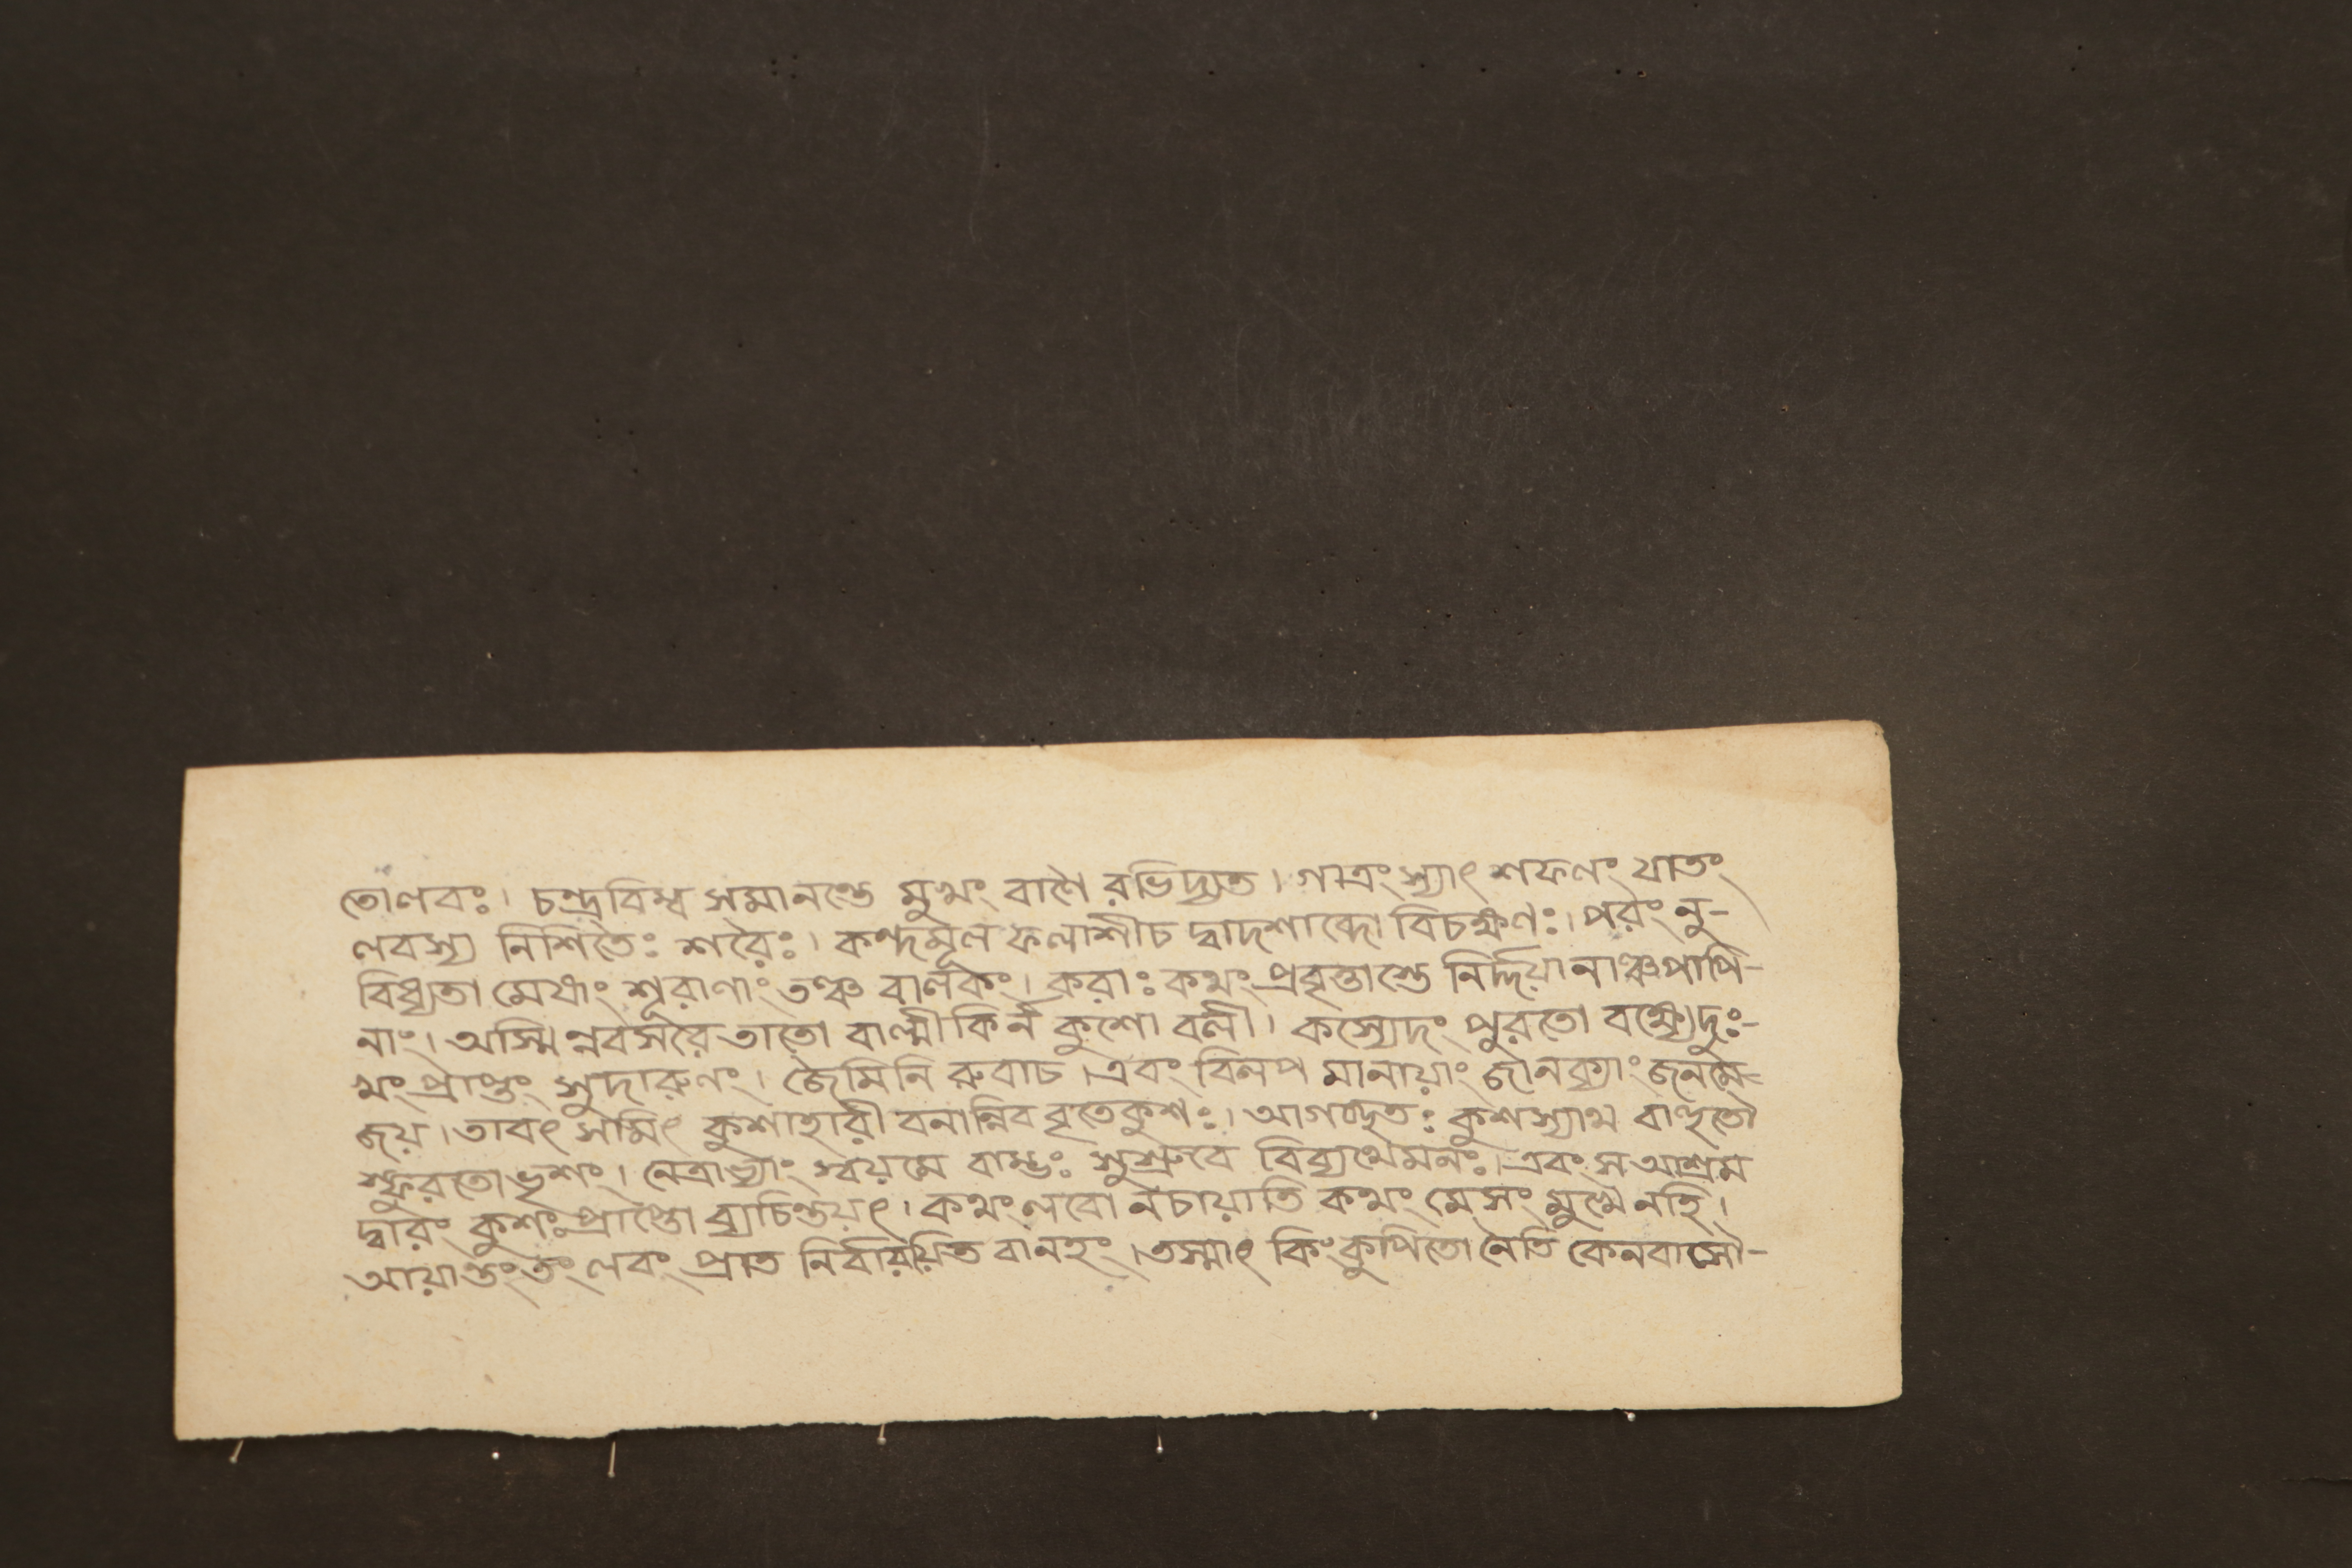 তোলবঃ। চন্দ্রবিম্ব সমানন্তে মুখং বাণৈ রভিদ্যুত। গাত্রং স্যাৎ শফলং যাতং
লবস্য নিশিতৈঃ শরৈঃ। কন্দমূল ফলাশীচ দ্বাদশাব্দো বিচক্ষণঃ। পরং নু-
বিধ্যতা মেষাং শূরাণাং তঞ্চ বালকং। করাঃ কথং প্রবৃত্তাস্তে নির্দ্দয়া নাঞ্চপাপি-
নাং। অস্মি ন্নবসরে তাতো বাল্মীকি র্ন কুশো বলী। কস্যেদং পুরতো বক্ষ্যেদুঃ-
খং প্রাপ্তং সুদারুণং। জৈমিনি রুবাচ। এবং বিলপ মানায়াং জানক্যাং জনমে-
জয়। তাবৎ সমিৎ কুশাহারী বনান্নিব বৃতেকুশঃ। আগচ্ছতঃ কুশস্যাথ বাহূতৌ
স্ফুরতো ভৃশং। নেত্রাভ্যাং স্বয়মে বাম্ভঃ সুশ্রুবে বিব্যথেমনঃ। এবং স আশ্রম
দ্বারং কুশঃ প্রাপ্তো ব্যচিন্তয়ৎ। কথং লবো নচায়াতি কথং মেসং মুখে নহি।
আয়ান্তং তং লবং প্রাত নির্বারয়িত বানহং। তস্মাৎ কিং কুপিতো নৈতি কেনবাসৌ-